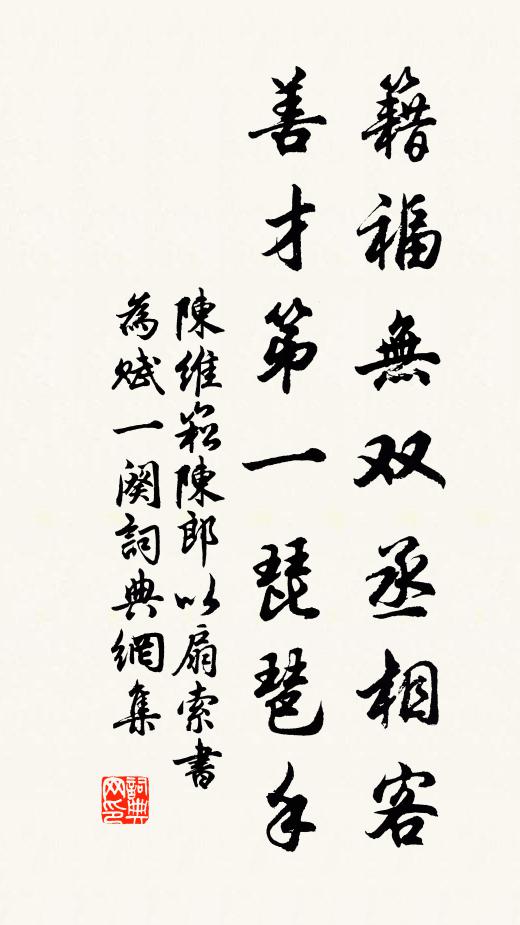 籍福無双丞相客
善才第一琵琶手
陳維崧陳郎以扇索書
為賦一闋詞典網集
詞典網印